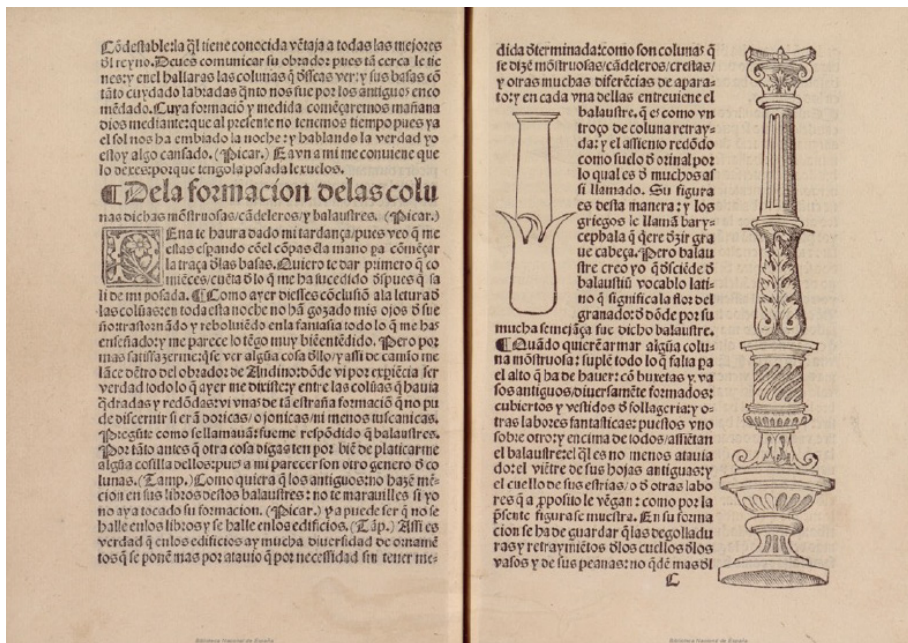 Cõdestable: la q̃l tiene conocida vẽtaja a todas las mejores
ðl reyno. Deues comunicar su obrador: pues tã cerca le tie
nes: y enel hallaras las colunas q̃ ðsseas ver: y sus basas cõ
tãto cuydado labradas q̃nto nos fue por los antiguos enco
mẽdado. Cuya formaciõ y medida comẽçaremos mañana
dios mediante: que al presente no tenemos tiempo pues ya
el sol nos ha embiado la noche: y hablando la verdad yo
estoy algo cansado. (Picar.) E avn a mi me conuiene que
lo dexes: porque tengo la posada lexuelos.
¶ De la formacion delas colu
nas dichas mõstruosas/cãdeleros/y balaustres. (Picar.)
Ena te haura dado mi tardança/pues veo q̃ me
estas espando cõel cõpas ẽla mano pa comẽçar
la traça ðlas basas. Quiero te dar primero q̃ co
miẽces/cuẽta ðlo q̃ me ha sucedido ðspues q̃ sa
li de mi posada. ¶ Como ayer diesses cõclusiõ ala letura ð
las colũas: en toda esta noche no hã gozado mis ojos ð sue
ño: trastornãdo y reboluiẽdo enla fantasia todo lo q̃ me has
enseñado: y me parece lo tẽgo muy biẽ entẽdido. Pero por
mas satisfazerme: q̃se ver algũa cosa ðllo/y assi de camio me
lãce dẽtro del obrador: de Andino: dõde vi por expiẽcia ser
verdad todo lo q̃ ayer me diziste: y entre las colũas q̃ hauia
q̃dradas y redõdas: vi vnas de tã estraña formaciõ q̃ no pu
de discernir si erã doricas/o jonicas/ni menos tuscanicas.
Pregũte como se llamauã: fueme respõdido q̃ balaustres.
Por tãto antes q̃ otra cosa digas ten por biẽ de platicarme
algũa cosilla dellos: pues a mi parecer son otro genero ð co
lunas. (Tamp.) Como quiera q̃ los antiguos: no hazẽ mẽ-
cion en sus libros destos balaustres: no te marauilles si yo
no aya tocado su formacion. (Picar.) ya puede ser q̃ no se
halle enlos libros y se halle enlos edificios. (Tãp.) Assi es
verdad q̃ enlos edificios ay mucha diuersidad de ornamẽ
tos q̃ se ponẽ mas por atauio q̃ por necessidad sin tener me-
dida ðterminada: como son colunas q̃
se dizẽ mõstruosas/cãdeleros/crestas/
y otras muchas diferẽcias de apara-
to: y en cada vna dellas entreuiene el
balaustre. q̃ es como vn
troço de coluna retray-
da: y el assiento redõdo
como suelo ð orinal por
lo qual es ð muchos as
si llamado. Su figura
es desta manera: y los
griegos le llamã bary-
cephala q̃ q̃ere ðzir gra
ue cabeça. Pero balau
stre creo yo q̃ ðsciẽde ð
balaustiũ vocablo lati-
no q̃ significa la flor del
granado: ð dõde por su
mucha semejãça fue dicho balaustre.
¶ Quãdo quierẽ armar algũa colu-
na mõstruosa: suplẽ todo lo q̃ falta pa
el alto q̃ ha de hauer: cõ buxetas y va
sos antiguos/diuersamẽte formados:
cubiertos y vestidos ð follageria: y o-
tras labores fantasticas: puestos vno
sobre otro: y encima de todos/assiẽtan
el balaustre: el q̃l es no menos atauia
do: el viẽtre de sus hojas antiguas: y
el cuello de sus estrias/o ð otras labo
res q̃ a ꝓposito le vẽgan: como por la
p̃sente figura se muestra. En su forma
cion se ha de guardar q̃ las degolladu
ras y retraymiẽtos ðlos cuellos ðlos
vasos y de sus peanas: no q̃dẽ mas ðl
C
Biblioteca Nacional de España
Biblioteca Nacional de España